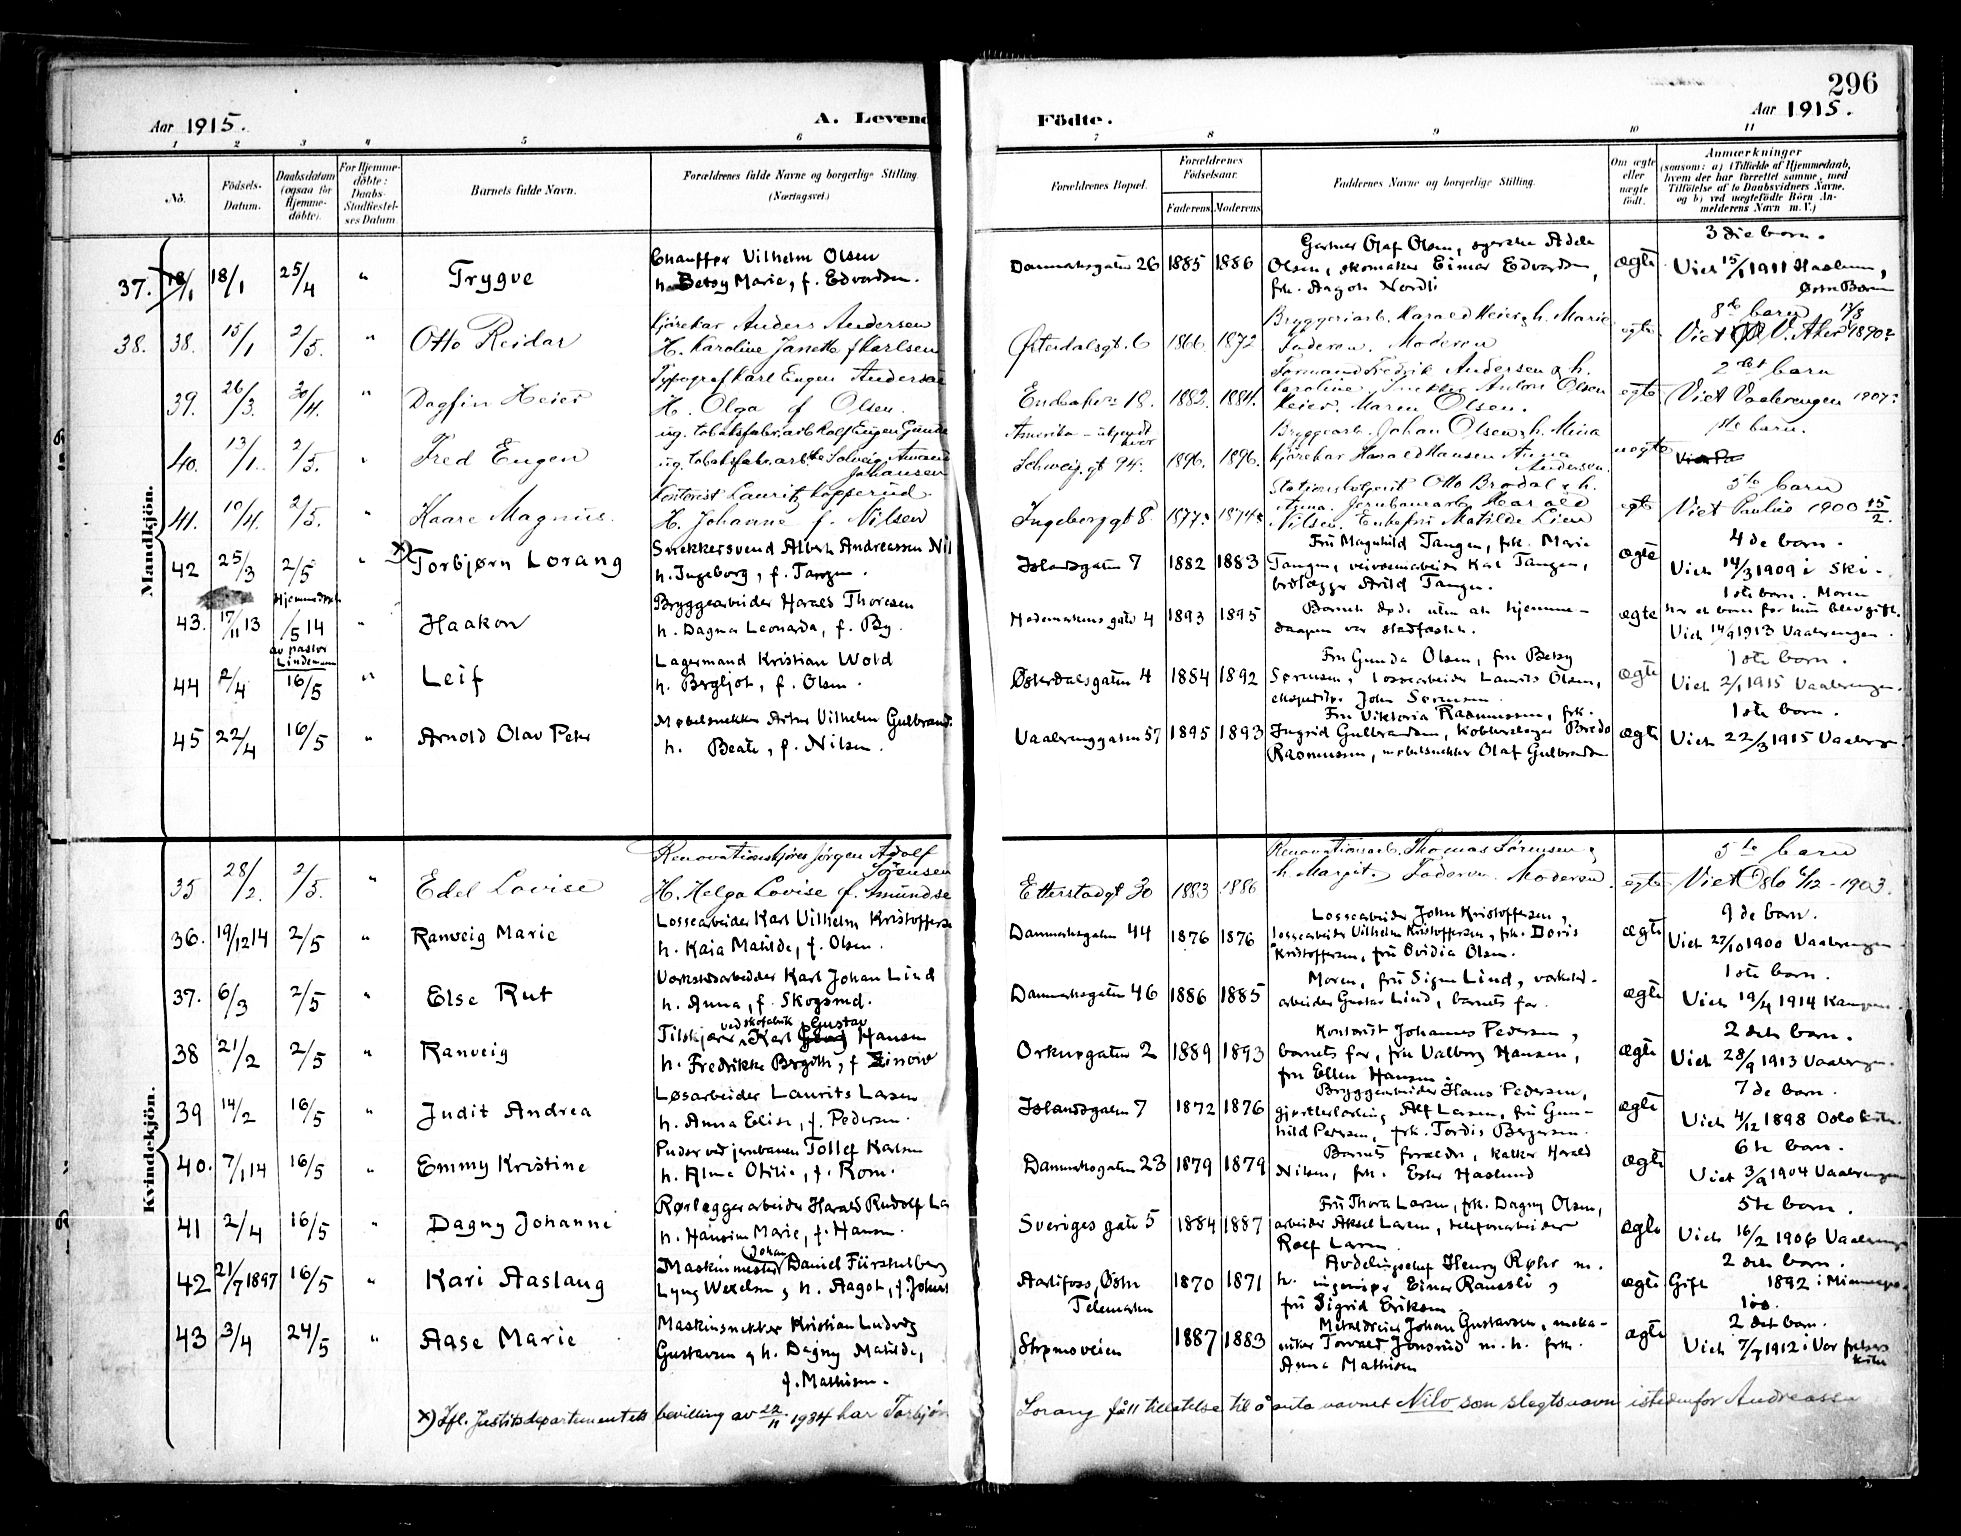 296
Aar 1915.
A. Levend
Födte.
Aar 1915.
1 2 3 4 5 6 7 8 9 10 11
No.
Födsels-Datum.
Daabsdatum (ogsaa for Hjemme-döbte).
For Hjemme-döbte: Daabs-Stadfæstel-ses Datum
Barnets fulde Navn.
Forældrenes fulde Navne og borgerlige Stilling. (Næringsvei.)
Forældrenes Bopæl.
Forældrenes Födselsaar.
Faderens. Moderens.
Faddernes Navne og borgerlige Stilling.
Om ægte eller uægte födt.
Anmærkninger
(saasom: a) (Tilfælde af Hjemmedaab, hvem der har forrettet samme, med Tilföielse af to Daabsvidners Navne, og b) ved uægtefödte Börn An-melderens Navn m. V.)
Mandkjön.
37. 18/1 25/4 " Trygve
Chauffør Vilhelm Olsen
h. Betsy Marie, f. Edvardsen.
Danmarksgaten 26 1885 1886
Gartner Olaf Olsen, Adele
Olsen, skomaker Einar Edvardsen,
frk. Aagot Nordli
ægte
3 die barn.
Viet 15/1 1911 Haslum,
38. 38. 15/1 2/5. " Otto Reidar
Kjørekar Anders Andersen
H. Karoline Janette f Karlsen
Østerdalsgt. 6 1866. 1872
Bryggeriarb. Harald Heier & h. Marie
Faderen. Moderen
egte
8de barn 13/3
Viet V. Aker 1890.
39. 26/3. 30/4. " Dagfin Heier
Typograf Karl Eugen Andersen
H. Olga f Olsen.
Enebakv. 18. 1882. 1884.
Formand Fredrik Andersen & h.
Karoline, Snekker Anton Olsen
Heier. Maren Olsen.
egte
2det barn
Viet Vaalerengen 1907.
40. 13/1. 2/5. " Fred Eugen
ug. tobaksfabr.arb. Rolf Eugen
ug. tobaksfabr.arb.ske Solveig Amanda
Johansen
Amerika
Schweig. gt 94. 1896. 1896.
Bryggearb. Johan Olsen & h. Mina
Kjørekar Harald Hansen Anna
Andersen.
uegte
1ste barn.
41. 10/4. 2/5. " Kaare Magnus.
Kontorist Lauritz Kopperud.
H. Johanne f. Nilsen
Ingeborggt 8. 1877. 1874.
Stationsbetjent Otto Brodal & h.
Jernbanearb Harald
Nilsen. Enkefru Matilde Lien
egte
5te barn
Viet Paulus 1900 15/2.
42 25/3 2/5 " x) Torbjørn Lorang
Snekkersvend Albert Andreassen Nil
h. Ingeborg, f. Tangen.
Islandsgaten 7 1882 1883
Fru Magnhild Tangen, frk. Marie
Tangen, veivæsenarbeider Karl Tangen,
Arild Tangen.
ægte
4 de barn.
Viet 14/3 1909 i Ski.
43. 17/11 13
Hjemmedøpt
/5 14
av pastor
Lindemann
" Haakon
Bryggearbeider Harald Thoresen
h. Dagmar Leonarda, f. By.
Hedemarkens gate 4 1893 1895
Barnet døde uten at hjemme-
daapen var stadfæstet.
ægte
1ste barn. Moren
har et barn før hun blev gift.
Viet 14/9 1913 Vaalerengen.
44 2/4 16/5 " Leif
Lagermand Kristian Wold
h. Bergljot, f. Olsen.
Østerdalsgaten 4 1884 1892
Fru Gunda Olsen, fru Betsy
Sørensen, Lossearbeider Laurits Olsen,
ekspeditør John Sørensen.
ægte
1ste barn.
Viet 2/1 1915 Vaalerengen.
45 22/4 16/5 " Arnold Olav Peter
Møbelsnekker Artur Vilhelm Gulbrand
h. Beate, f. Nilsen.
Vaalerenggaten 57 1895 1893
Fru Viktoria Rasmussen, frk.
Ingrid Gulbrandsen, Kobberslager Bredo
Rasmussen, møbelsnekker Olaf Gulbrandsen
ægte
1ste barn.
Viet 22/3 1915 Vaalereng.
Kvindekjön.
35 28/2. 2/5. " Edel Lovise
Renovationskjører Jørgen Adolf
Sørensen
H. Helga Lovise f. Amundse
Etterstadgt 30 1883 1886
Renovationsarb. Thomas Sørensen &
h. Margit. Faderen. Moderen.
egte
5te barn
Viet Oslo 6/12 - 1903.
36. 19/12 14 2/5 " Ranveig Marie
Lossearbeider Karl Vilhelm Kristoffers
h. Kaia Matilde, f. Olsen.
Danmarksgaten 44 1876 1876
Lossearbeider John Kristoffersen,
lossearbeider Vilhelm Kristoffersen, frk. Doris
Kristoffersen, fru Ovidia Olsen.
ægte
9 de barn.
Viet 27/10 1900 Vaalerengen
37. 6/3 2/5 " Else Rut
Verkstedsarbeider Karl Johan Lind
h. Anna, f. Skogsrud.
Danmarksgaten 46 1886 1885
Moren, fru Signe Lind, verksted-
arbeider Gustav Lind, barnets far.
ægte
1ste barn.
Viet 19/4 1914 Kampen.
38 21/2 2/5 " Ranveig
ved skofabrik Gustav
Tilskjærer Karl Hansen
h. Fredrikke Birgitte, f
Orknøgaten 2 1889 1893
Kontorist Johannes Pedersen,
barnets far, fru Valborg Hansen,
fru Ellen Hansen.
ægte
2 det barn.
Viet 28/9 1913 Vaalerengen.
39 14/2 16/5 " Judit Andrea
Løsarbeider Laurits Larsen
h. Anna Elise, f. Pedersen.
Islandsgaten 7 1872 1876
Bryggearbeider Hans Pedersen,
gjørtlerlærling Alf Larsen, fru Gun-
hild Persen, frk. Tordis Bergersen.
ægte
7 de barn.
Viet 4/12 1898 Oslo kirke.
40. 7/1 14 16/5 " Emmy Kristine
Pudser ved jernbanen Tollef Karlsen
h. Alma Otilie, f. Rom.
Danmarksgaten 23 1879 1879
Barnets forældre, Harald
Nilsen, frk. Ester Haslund
ægte
6te barn.
Viet 3/9 1904 Vaalerengen
41 2/4 16/5 " Dagny Johanne
Rørlæggerarbeider Harald Rudolf La
h. Hansine Marie, f. Hansen.
Sveriges gate 5 1884 1887
Fru Thora Larsen, frk. Dagny Olsen,
arbeider Aksel Larsen, telefonarbeider
Rolf Larsen.
ægte
5te barn.
Viet 16/2 1906 Vaalereng
42 21/7 1897 16/5 " Kari Aaslaug
Johan
Maskinmester Daniel Fürstenberg
Lyng Wexelsen & h. Aagot, f. Johns
Aarlifoss, Østre
Telemarken
1870 1871
Avdelingschef Henry Røhr m.
h. ingeniør Einar
fru Sigrid Eriksen
ægte
2 det barn.
Gift 1892 i Minneapo-
lis.
43 3/4 24/5 " Aase Marie
Maskinsnekker Kristian Ludvig
Gustavsen & h. Dagny Matilde,
f. Mathisen.
Strømsveien 1887 1883
Metaldreier Johan Gustavsen, meka-
niker Torvald Jonsrud m. h. frk.
Anna Mathisen
ægte
2 det barn.
Viet 7/7 1912 i Vor frelsers
kirke
x) Ifl. Justitsdepartementets bevilling av 22/11 1934 har Torbjørn
Lorang fått tillatelse til å anta navnet Nilo som slegtsnavn istedenfor Andreassen